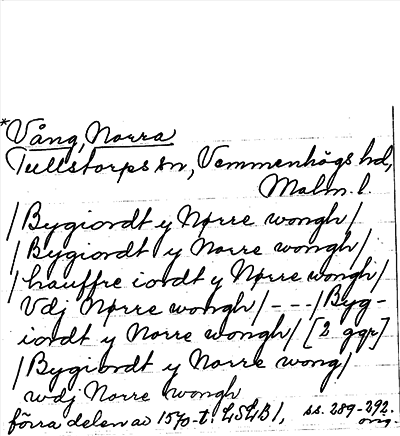 *Vång, Norra
Tullstorps sn, Vemmenhögs hd,
Malm. l.
/Bygiordt y Nørre wongh/
/Bygiordt y Norre wongh/
/hauffre iordt y Nørre wongh/
Vdj Nørre wongh/ - - - /Byg-
iordt y Norre wongh/ [2 ggr]
/Bygiordt y Norre wong/
wdj Norre wongh
förra delen av 1570-t. LSLB 1, ss. 289-292.
orig.